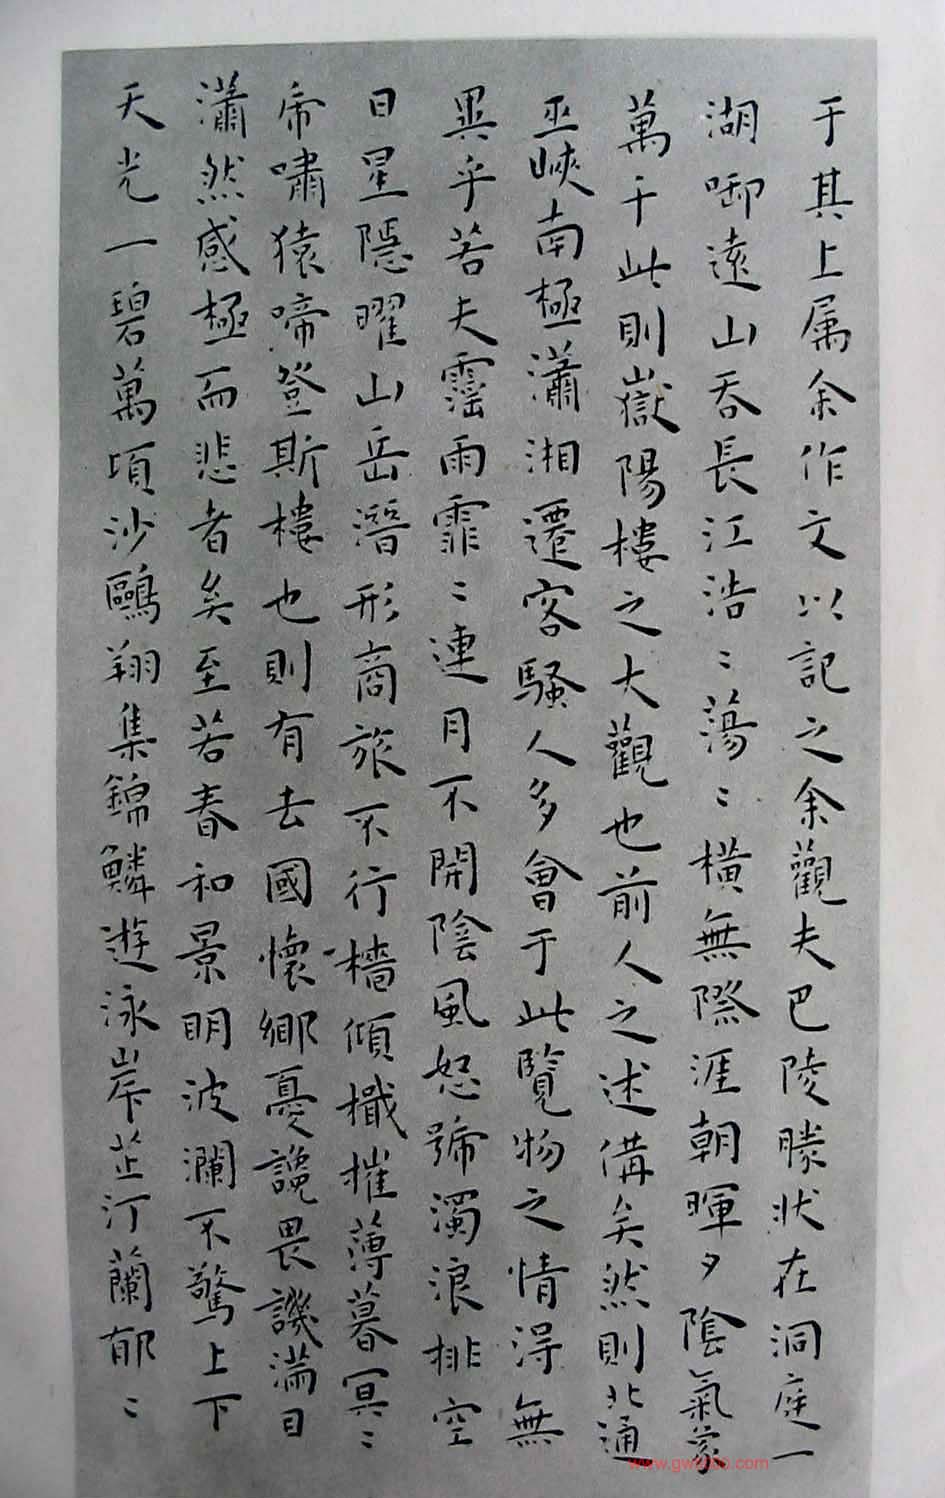 于其上属余作文以記之余觀夫巴陵勝状在洞庭一
湖啣遠山吞長江浩〻蕩〻橫無際涯朝暉夕陰氣象
萬千此則嶽陽樓之大觀也前人之述備矣然則北通
巫峽南極瀟湘遷客騷人多會于此覽物之情得無
異乎若夫霪雨霏〻連月不開陰風怒號濁浪排空
日星隱曜山岳潛形商旅不行檣傾檝摧薄暮冥〻
帝嘯猿啼登斯樓也則有去國懷鄉憂讒畏譏滿目
瀟然感極而悲者矣至若春和景明波瀾不驚上下
天光一碧萬頃沙鷗翔集錦鱗遊泳岸芷汀蘭郁〻